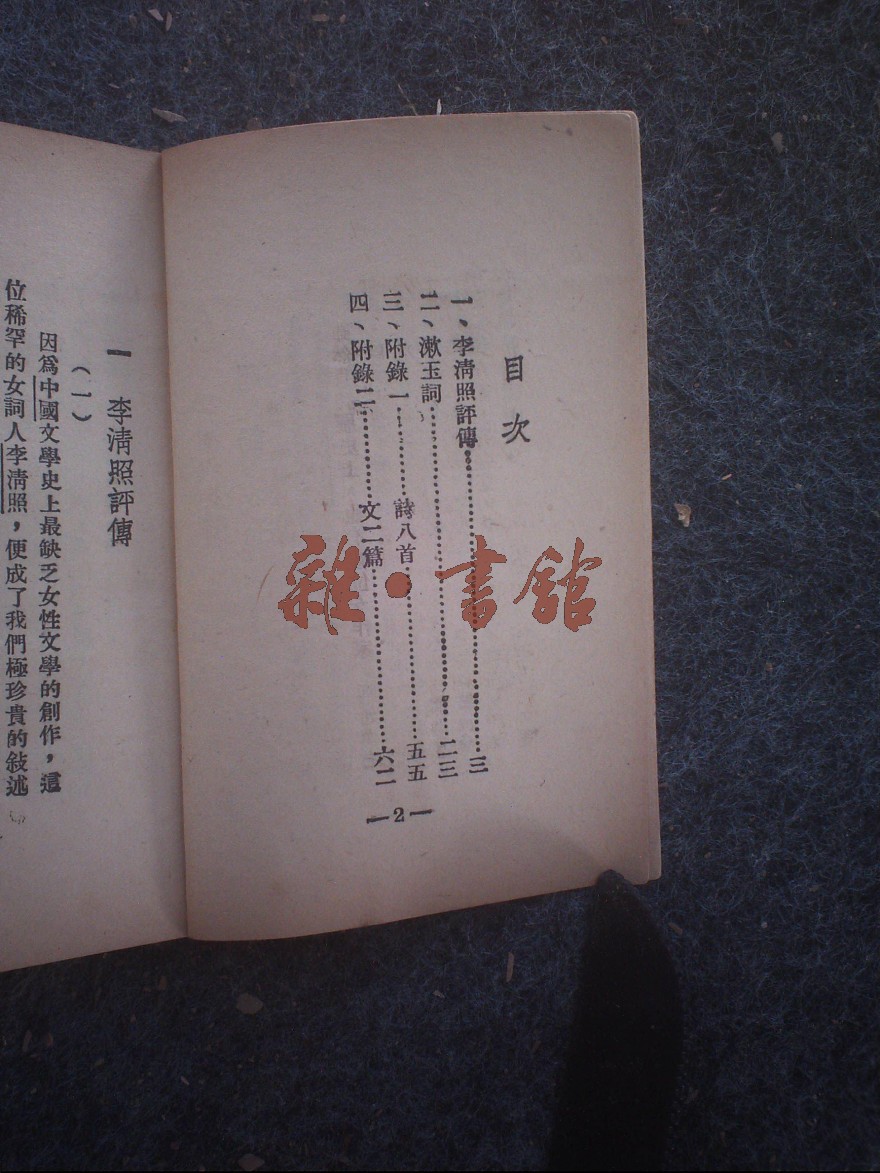 目次
一、李清照評傳…………三
二、漱玉詞…………二三
三、附錄一…………詩八首…………五五
四、附錄二…………文二篇…………六二
—2—
一 李清照評傳
（一）
因爲中國文學史上最缺乏女性文學的創作，這
位稀罕的女詞人李清照，便成了我們極珍貴的敍述
雜·書館